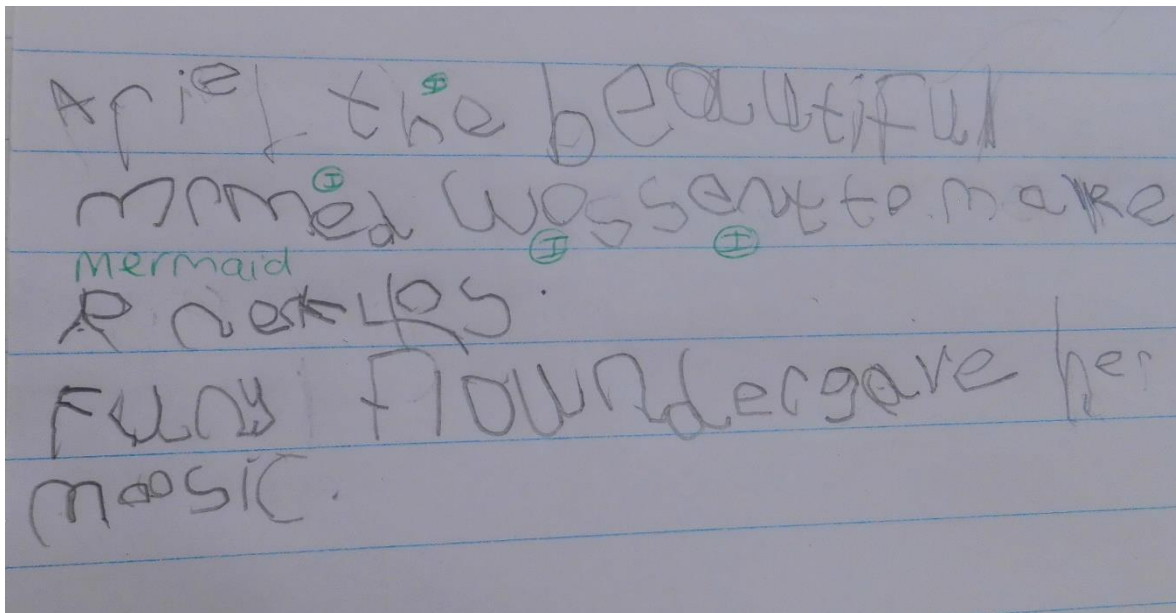 Ariel the beautiful
mrmed wossent to make
mermaid
A
Funy flounder gave her
moosic.